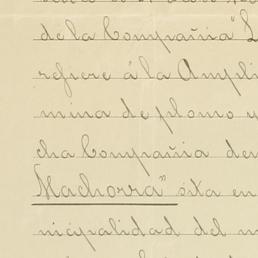 de la Compañia "L
refiere á la Ampli
mina de plomo y
cha Compañia den
Machorra" sita en
nicipalidad del m